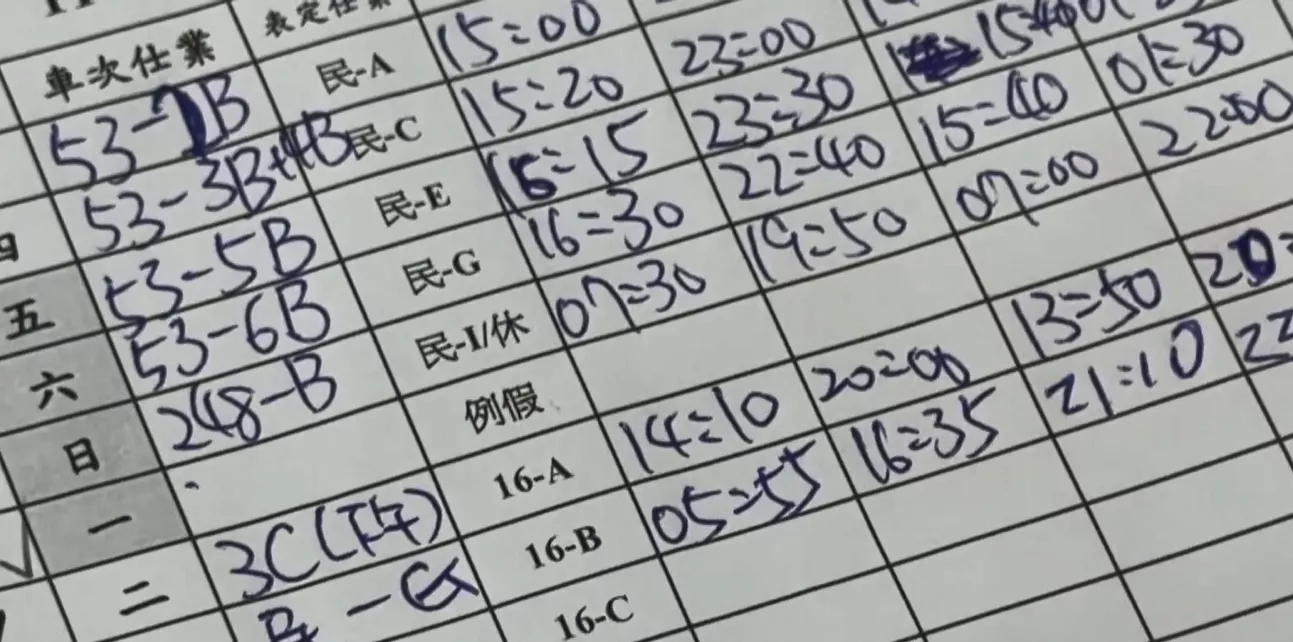 車次仕業 表定仕業
53-1B 民-A 15:00 23:00 15:40
53-3B+4B 民-C 15:20 23:30 15:40 01:30
53-5B 民-E 16:15 22:40 07:00 22:00
五 53-6B 民-G 16:30 19:50
六 248-B 民-I/休 07:30
日 例假 20:00 13:50
一 3C(下午) 16-A 14:10 16:35 21:10
二 16-B 05:55
16-C